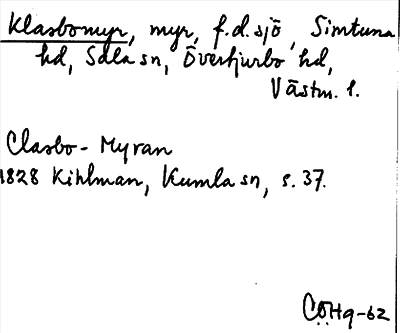 Klasbomyr, myr, f.d. sjö, Simtuna
hd, Sala sn, Övertjurbo hd,
Västm. l.
Clasbo - Myran
1828 Kihlman, Kumla sn, s. 37.
CÖHg-62